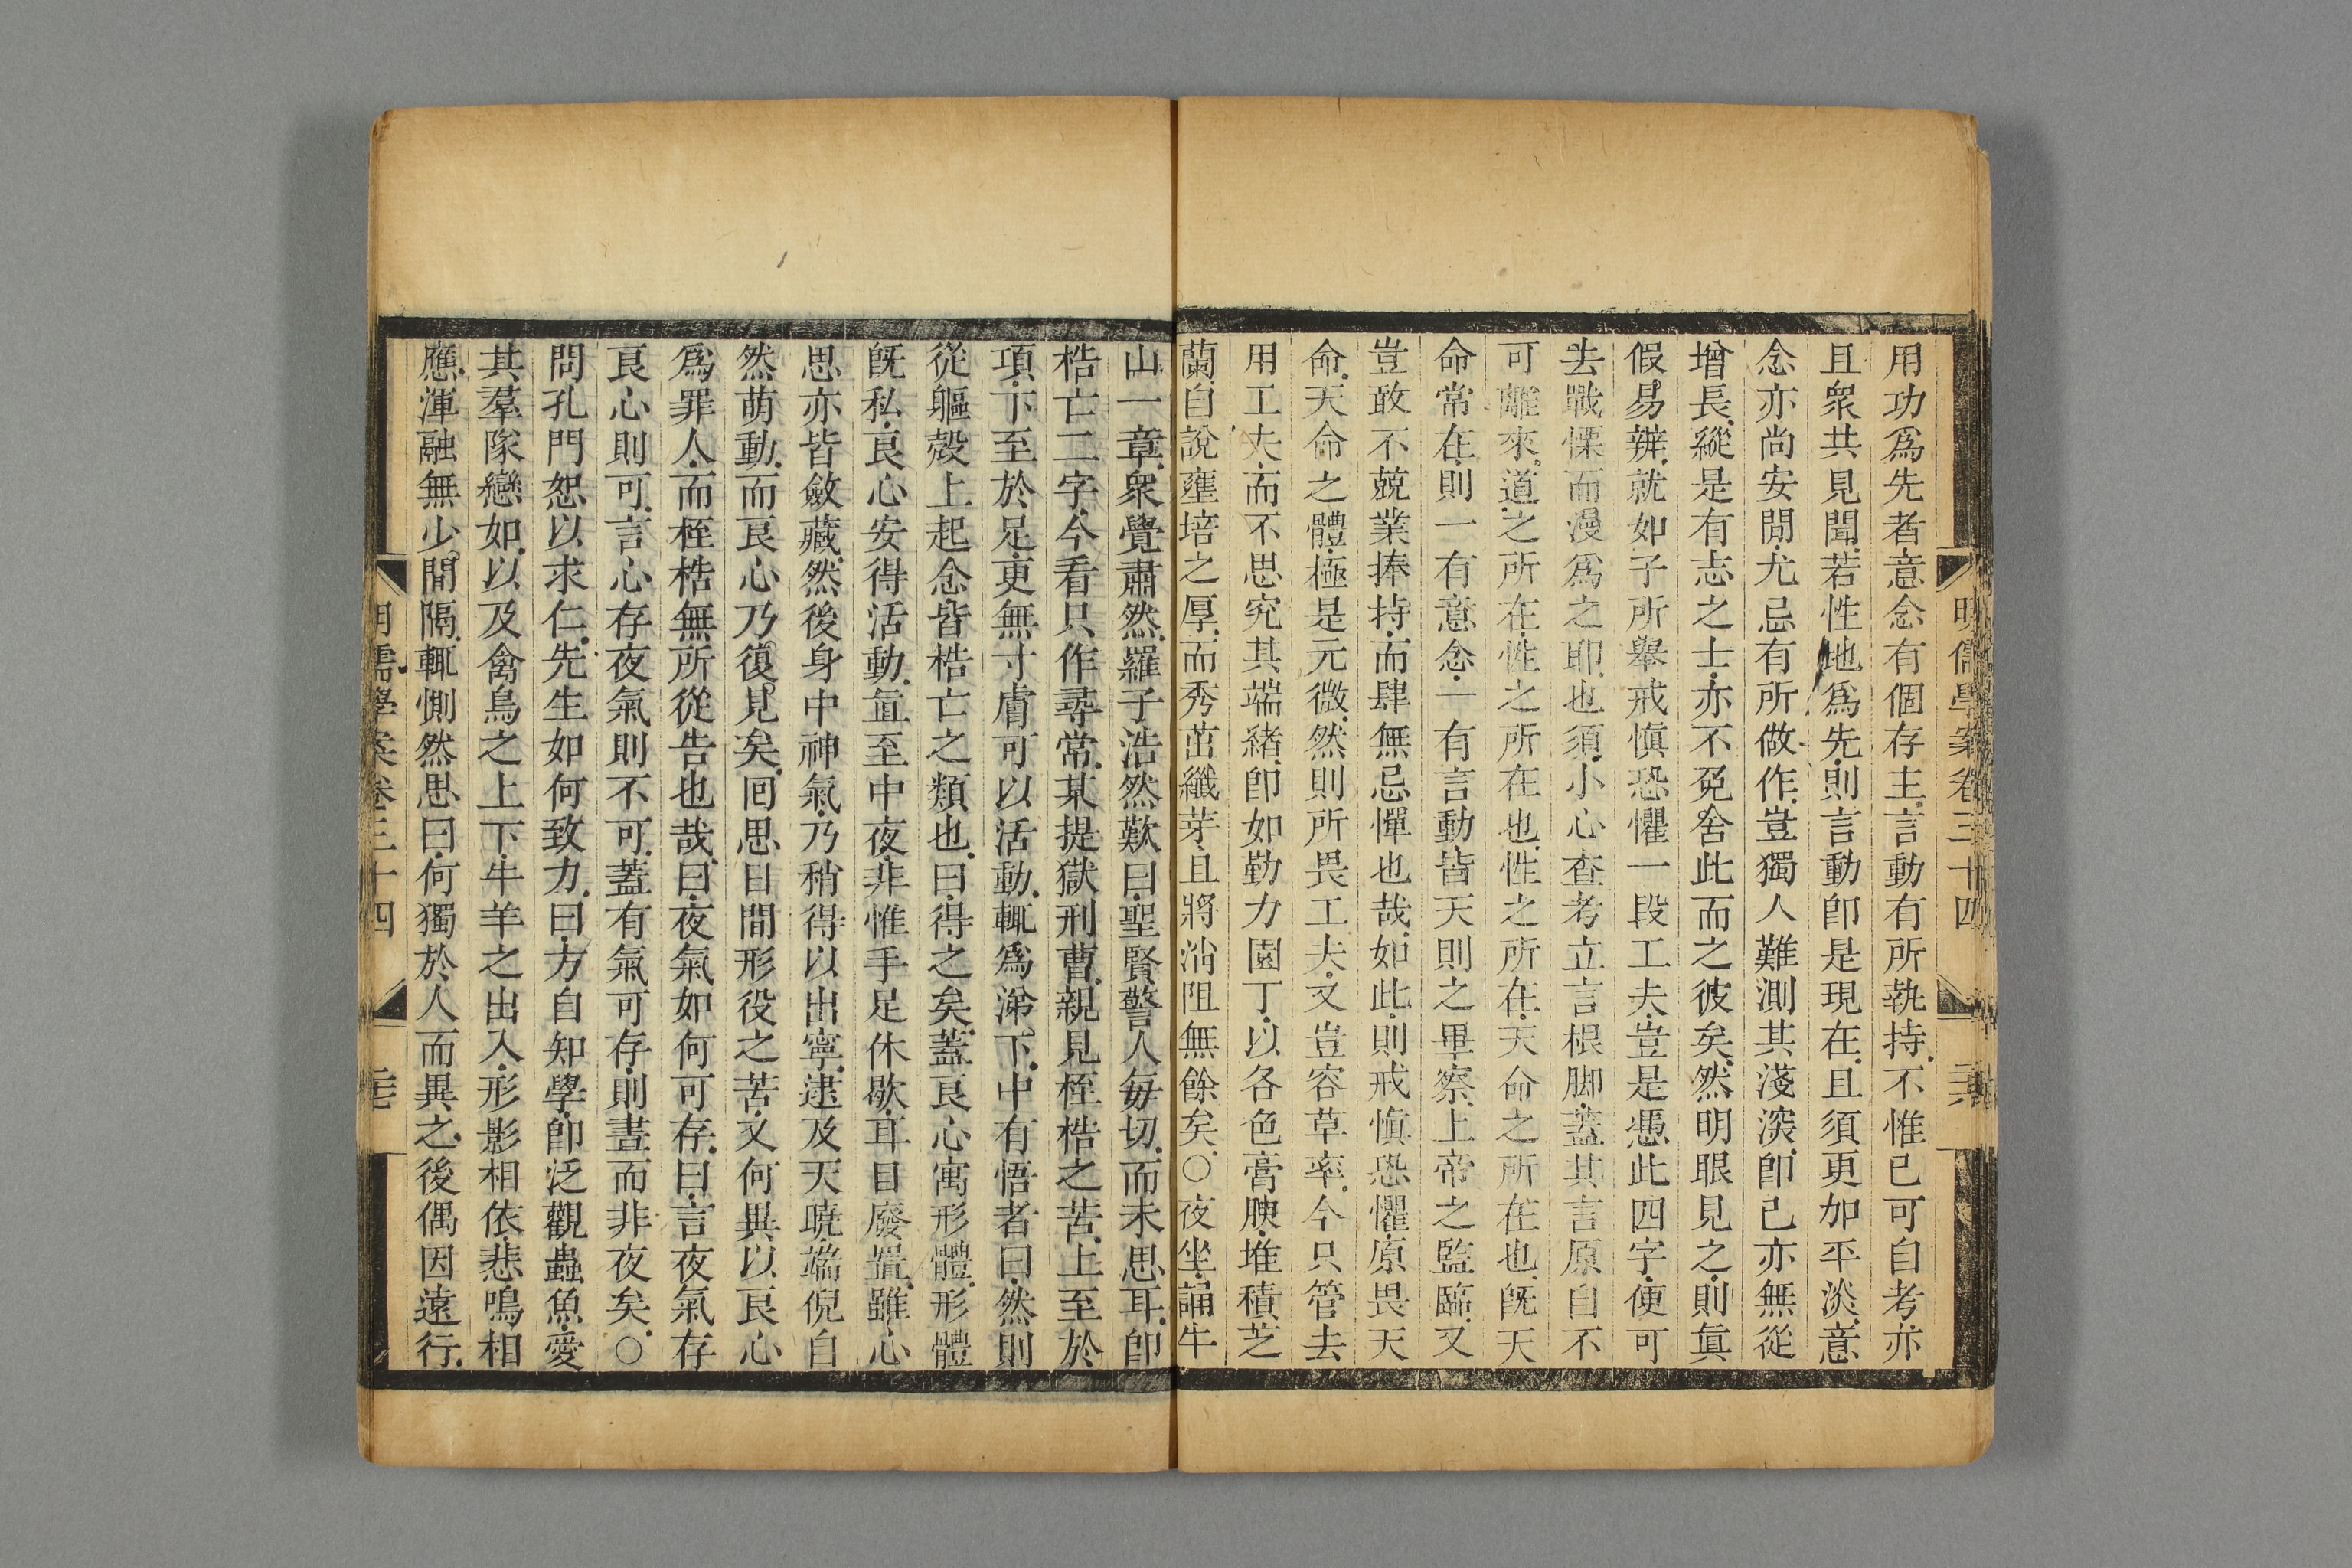 明儒學案卷三十四
用功爲先者意念有個存主言動有所執持不惟己可自考亦
且衆共見聞若性地爲先則言動卽是現在且須更加平淡意
念亦尚安閒尤忌有所做作豈獨人難測其淺深卽己亦無從
增長縱是有志之士亦不免舍此而之彼矣然明眼見之則眞
假易辨就如子所舉戒慎恐懼一段工夫豈是憑此四字便可
去戰慄而漫爲之耶也須小心查考立言根脚蓋其言原自不
可離來道之所在性之所在也性之所在天命之所在也旣天
命常在則一有意念一有言動皆天則之畢察上帝之監臨又
豈敢不兢業捧持而肆無忌憚也哉如此則戒慎恐懼原畏天
命天命之體極是元微然則所畏工夫又豈容草率今只管去
用工夫而不思究其端緒卽如勤力園丁以各色膏腴堆積芝
蘭自說壅培之厚而秀茁纖芽且將消阻無餘矣○夜坐誦牛
山一章衆覺肅然羅子浩然歎曰聖賢警人每切而未思耳卽
梏亡二字今看只作尋常某提獄刑曹親見桎梏之苦上至於
項下至於足更無寸膚可以活動輒爲涕下中有悟者曰然則
從軀殼上起念皆梏亡之類也曰得之矣蓋良心寓形體形體
旣私良心安得活動直至中夜非惟手足休歇耳目廢置雖心
思亦皆斂藏然後身中神氣乃稍得以出寧逮及天曉端倪自
然萌動而良心乃復見矣回思日間形役之苦又何異以良心
爲罪人而桎梏無所從告也哉曰夜氣如何可存曰言夜氣存
良心則可言心存夜氣則不可蓋有氣可存則晝而非夜矣○
問孔門恕以求仁先生如何致力曰方自知學卽泛觀蟲魚愛
其羣隊戀如以及禽鳥之上下牛羊之出入形影相依悲鳴相
應渾融無少間隔輒惻然思曰何獨於人而異之後偶因遠行
明儒學案卷三十四